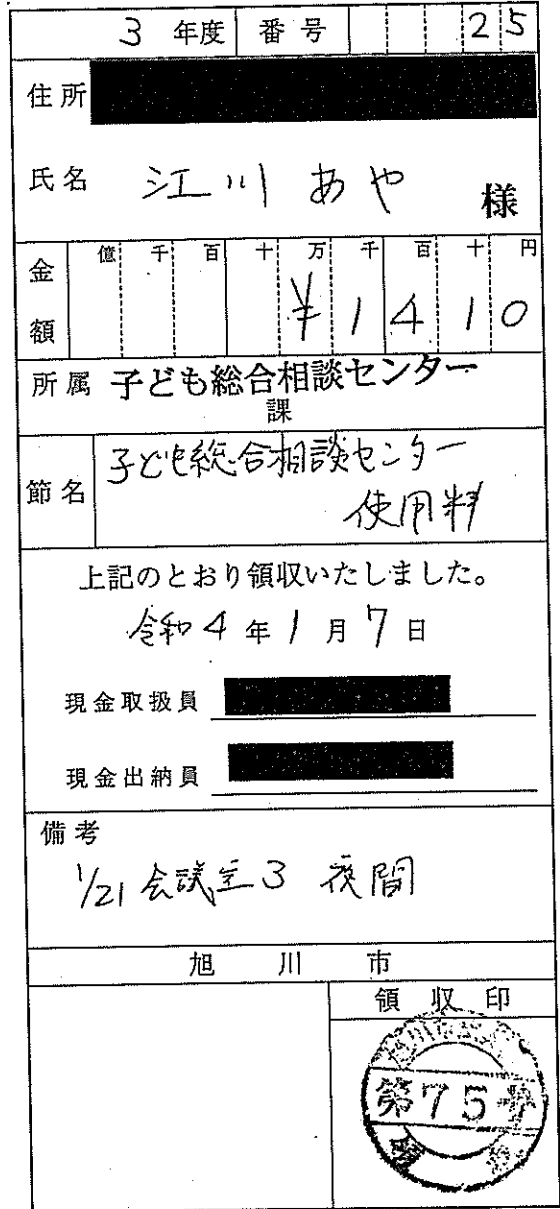 3 年度 番号 25
住所
氏名 江川あや 様
金額 億 千 百 十 万 千 百 十 円
¥1410
所属 子ども総合相談センター
課
節名 子ども総合相談センター
使用料
上記のとおり領収いたしました。
令和4年1月7日
現金取扱員
現金出納員
備考
1/21 会議室3 夜間
旭川市
領収印
第75号